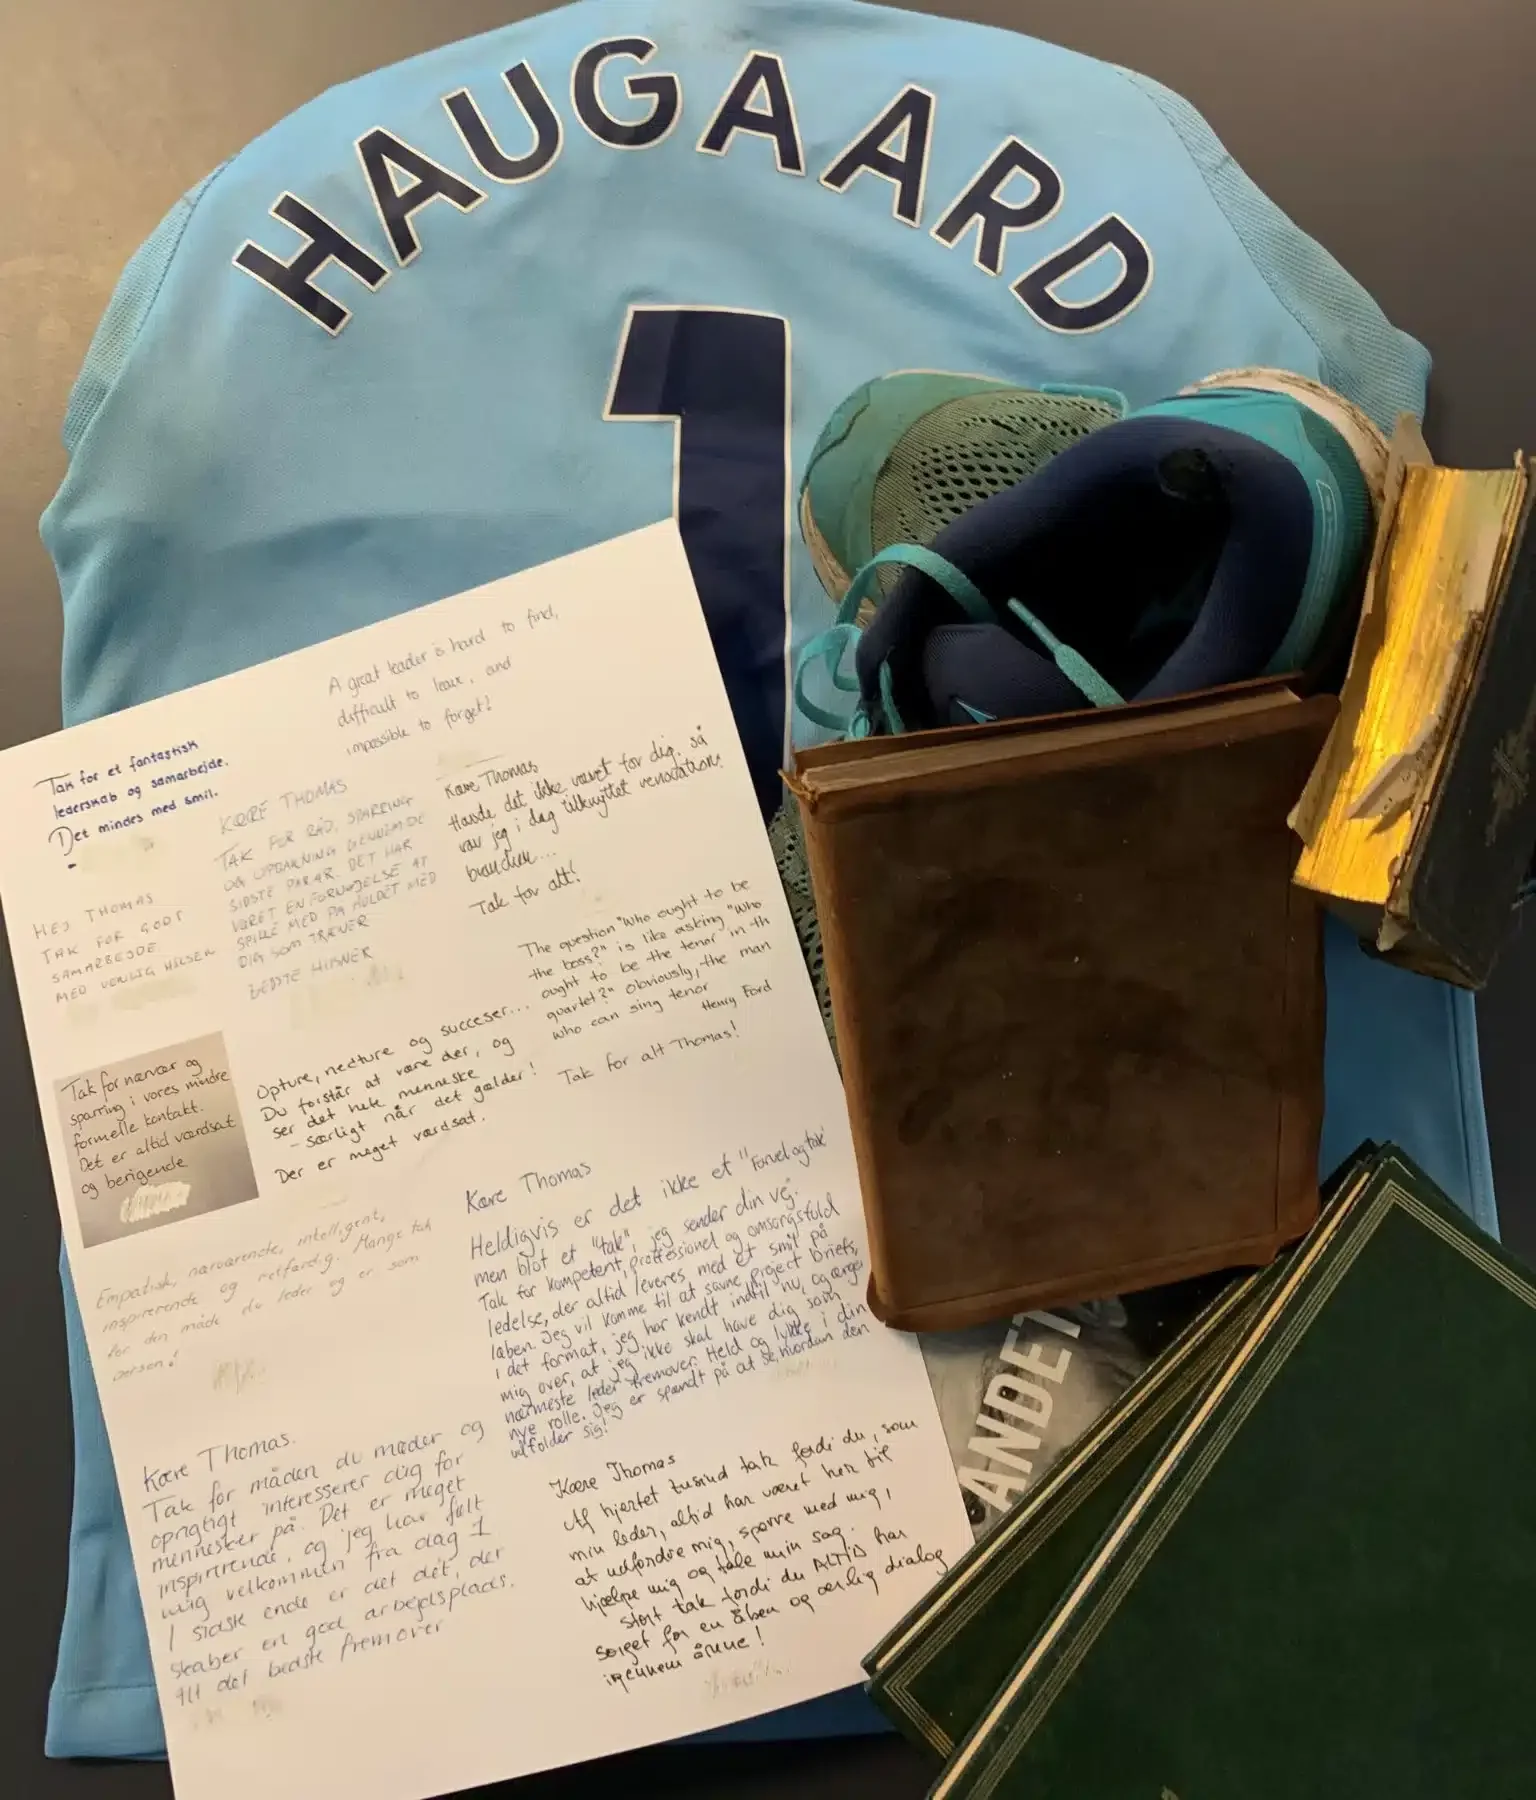 HAUGAARD
1
A great leader is hard to find,
difficult to leave, and
impossible to forget!
Tak for et fantastisk
lederskab og samarbejde.
Det mindes med smil.
KÆRE THOMAS
TAK FOR RÅD, SPARRING
OG OPBAKNING GENNEM DE
SIDSTE PAR ÅR. DET HAR
VÆRET EN FORNØJELSE AT
SPILLE MED PÅ HOLDET MED
DIG SOM TRÆNER
BEDSTE HILSNER
Kære Thomas
Havde det ikke været for dig, så
var jeg i dag tilknyttet renovations
branchen...
Tak for alt!
HEJ THOMAS
TAK FOR GODT
SAMARBEJDE
MED VENLIG HILSEN
The question "Who ought to be
the boss?" is like asking "Who
ought to be the tenor in th
quartet?" Obviously, the man
who can sing tenor
Henry Ford
Tak for alt Thomas!
Opture, nedture og succeser...
Du forstår at være der, og
ser det hele menneske
- særligt når det gælder!
Der er meget værdsat.
Tak for nærvær og
sparring i vores mindre
formelle kontakt.
Det er altid værdsat
og berigende
Empatisk, nærværende, intelligent,
inspirerende og retfærdig. Mange tak
for den måde du leder og er som
person!
Kære Thomas
Heldigvis er det ikke et "Farvel og tak"
men blot et "tak", jeg sender din vej.
Tak for kompetent, professionel og omsorgsfuld
ledelse, der altid leveres med et smil på
læben. Jeg vil komme til at savne project briefs,
i det format, jeg har kendt indtil nu, og ærge
mig over, at jeg ikke skal have dig som
nærmeste leder fremover. Held og lykke i din
nye rolle. Jeg er spændt på at se, hvordan den
udfolder sig!
Kære Thomas.
Tak for måden du møder og
oprigtigt interesserer dig for
mennesker på. Det er meget
inspirerende, og jeg har følt
mig velkommen fra dag 1
I sidste ende er det det, der
skaber en god arbejdsplads.
Alt det bedste fremover
Kære Thomas
Af hjertet tusind tak fordi du, som
min leder, altid har været her til
at udfordre mig, sparre med mig,
hjælpe mig og tale min sag.
Stort tak fordi du ALTID har
sørget for en åben og ærlig dialog
igennem årene!
ANDET